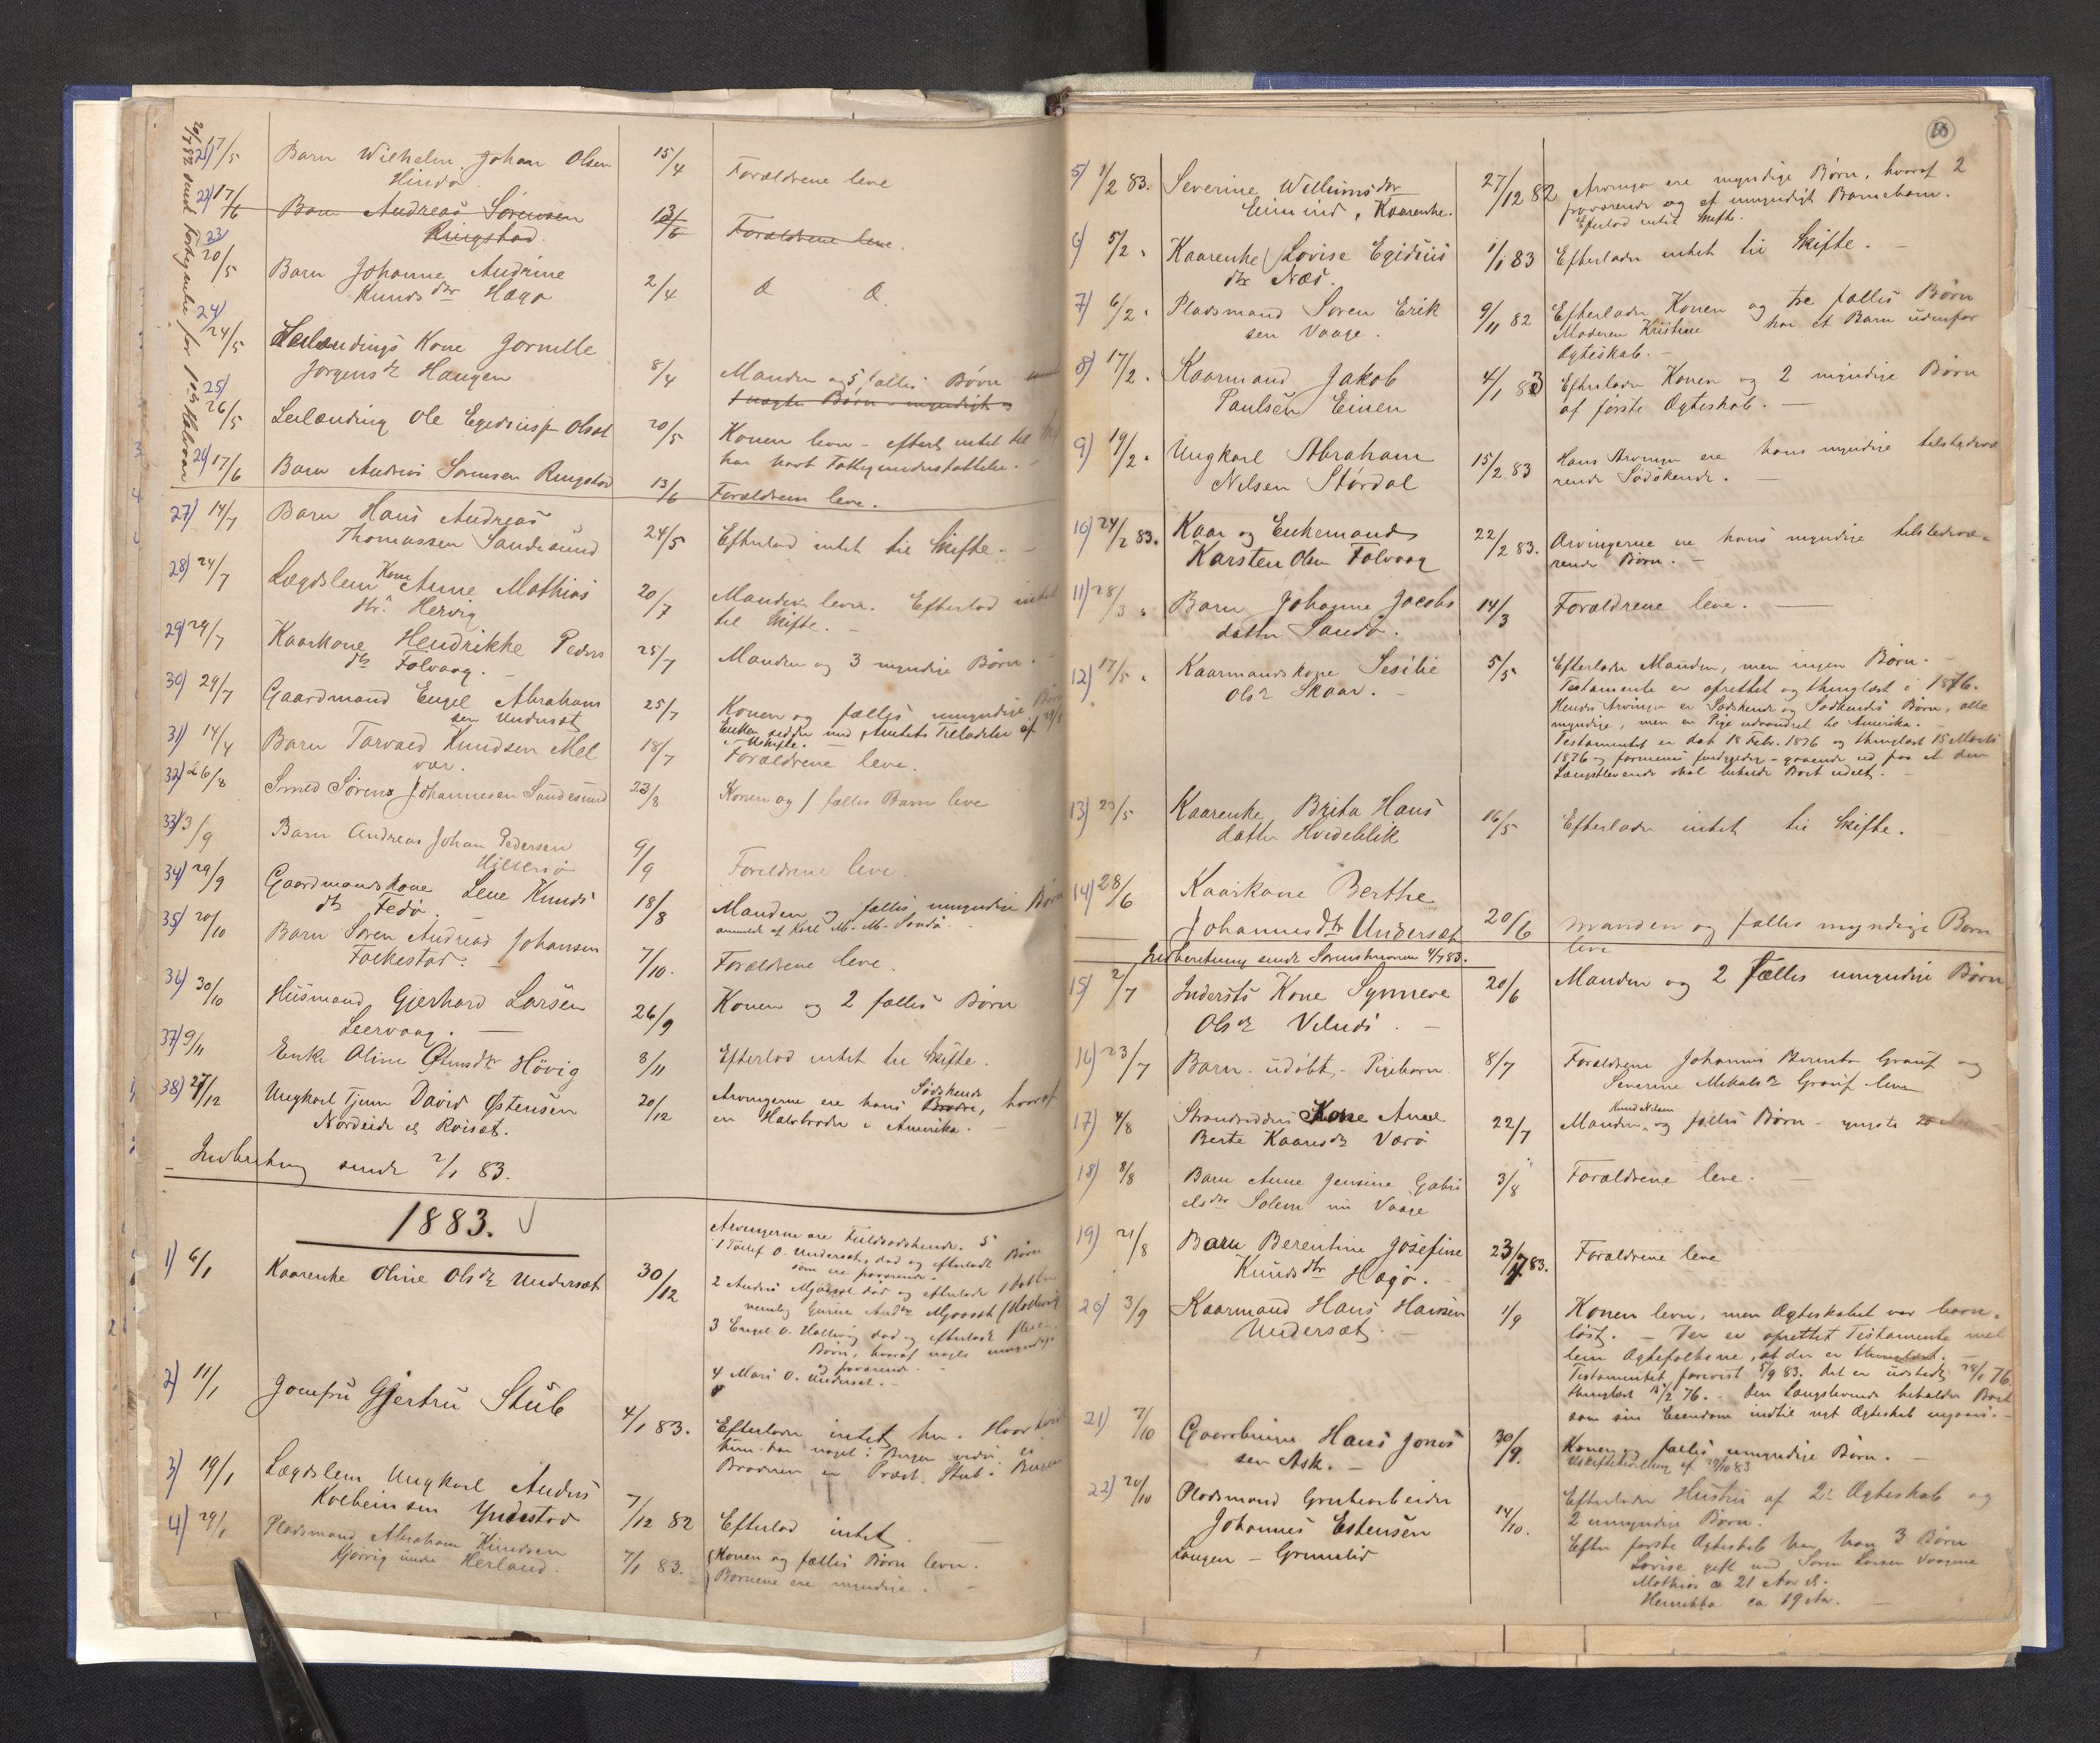 21) 17/5 Barn Wilhelm Johan Olsen 15/4 Forældrene leve
Hindø
22) 17/6 Barn Andreas Sørensen 13/6 Forældrene leve.
Ringstad.
23 20/5 Barn Johanne Andrine 2/4
Knudsdtr Hægø
24/ 24/5 Leilændings Kone
Jørgensdtr Haugen 8/4 Manden og 5 fælles Børn
25) 26/5 Leilænding Ole Egidiussen 20/5 Konen lever - efterl. intet til
har havt Fattigunderstøttelse.
26) 17/6 Barn Andreas Sørensen Ringstad 13/6 Forældrene leve.
27) 14/7 Barn Hans Andreas
Thomassen Sandesund 24/5 Efterlod intet til Skifte. -
28) 24/7 Lægdslem Kone Anne Mathias
dtr. Hervig 20/7 Manden lever. Efterlod intet
til Skifte. -
29) 29/7 Kaarkone Hendrikke Peders
dtr Folvaag. - 25/7 Manden og 3 myndige Børn.
30) 29/7 Gaardmand Engel Abraham
sen Undersæt 25/7 Konen og fælles umyndige Børn
Enken sidder med Amtets Tilladelse af
Uskifte. -
31) 14/4 Barn Torvald Knudsen Mel
vær. 18/7 Forældrene leve.
32) 26/8 Smed Søren Johannesen Sandesund 23/8 Konen og 1 fælles Barn leve
33) 3/9 Barn Andreas Johan Pedersen
9/9 Forældrene leve.
34) 29/9 Gaardmandskone Lene Knuds
dtr Fedø. - 18/8 Manden og fælles umyndige Børn
35) 20/10 Barn Søren Andreas Johansen
Folkestad. - 7/10. Forældrene leve.
36) 30/10 Husmand Gjerhard Larsen
Leervaag. - 26/9 Konen og 2 fælles Børn
37) 9/11 Enke Oline Høvig 3/11 Efterlod intet til Skifte.
38) 27/12 Ungkarl Tjener David Østensen
Nordeide 20/12 Arvingerne ere hans Sødskende Brødre, hvoraf
en Halvbroder i Amerika. -
Indberetning sendt 2/1 83.
1883.
1) 6/1 Kaarenke Oline Olsdtr Undersæt 30/12 Arvingerne ere Fuldsødskende. 5
O. Undersæt, død og efterladt Børn
som ere
2 Anders død og efterlade 1 Datter
3 Engel O. død og efterladt
Børn, hvoraf nogle umyndige
og fraværende. -
4 Mari O. Undersæt. -
2) 11/1 Jomfru Gjertru Stub 4/1 83. Efterlader intet her. Hvorvidt
hun har noget i Bergen vides ei
Broderen er Præst Stub i Bergen
3) 19/1 Lægdslem Ungkarl Anders
Kolbeinsen Yndestad 7/12 82 Efterlod intet. -
4) 29/1 Pladsmand Abraham Knudsen
under Herland. 7/1 83. Konen og fælles Børn lever.
Børnene ere myndige. -
5) 1/2 83. Severine Willumsdtr
Kaarenke. 27/12 82 Arvinger ere myndige Børn, hvoraf 2
fraværende og et umyndigt Barnebarn.
Efterlod intet Skifte.
6) 5/2 Kaarenke Lovise Egidius
dtr Næs. 1/1 83 Efterlader intet til Skifte. -
7) 6/2 Pladsmand Søren Erik
sen Vaage. 9/11 82 Efterlader Konen og tre fælles Børn
Moderen Kristine har et Barn udenfor
Ægteskab. -
8) 17/2 Kaarmand Jakob
Paulsen Einen 4/1 83 Efterlader Konen og 2 myndige Børn
af første Ægteskab. -
9) 19/2 Ungkarl Abraham
Nilsen Størdal 15/2 83 Hans Arvinger ere hans myndige tilstedevæ
rende Sødskende. -
10) 24/2 83. Kaar og Enkemand
Karsten Olsen Folvaag 22/2 83. Arvingerne ere hans myndige tilstedevæ-
rende Børn. -
11) 28/3 Barn Johanne Jacobs
datter Sandø. 14/3 Forældrene leve. -
12) 17/5 Kaarmandskone Sesilie
Olsdtr Skaar. - 5/5 Efterlader Manden, men ingen Børn. -
Testamente er oprettet og thinglæst i 1876.
Hendes Arvinger er Sødskende og Sødskendes Børn, alle
myndige, men en Pige udvandret til Amerika. -
Testamentet er dat 18 Febr. 1876 og thinglæst 15 Marts
1876 og gaaende ud paa at den
Længstlevende skal beholde Boet udelt. -
13) 23/5 Kaarenke Brita Hans
datter Hvideblik 16/5 Efterlader intet til Skifte.
14) 28/6 Kaarkone Berthe
Johannesdtr Undersæt 20/6 Manden og fælles myndige Børn
leve
Indberetning sendt Sorenskriveren 4/7 83.
15) 2/7 Indersts Kone Synneve
Olsdtr - 20/6 Manden og 2 fælles umyndige Børn
16) 23/7 Barn - udøbt, - Pigebarn 8/7 Forældrene Johannes og
Severine leve
17) 4/8 Kone Anne
Berte Værø 22/7 Manden Knud Nilsen og fælles Børn - yngste
18) 8/8 Barn Anne Jensine Gabri
elsdtr Solem nu Vaage 3/8 Forældrene leve. -
19) 21/8 Barn Berentine Josefine
Knudsdtr Hægø. - 23/7 83. Forældrene leve
20) 3/9 Kaarmand Hans Hansen
Undersæt. - 1/9 Konen lever, men Ægteskabet var barn-
løst. - Der er oprettet Testamente mel
lem Ægtefolkene, at der er thinglæst. -
Testamentet forevist 5/9 83. Det er udstedt 28/1 76
thinglæst 15/2 76. - Den Længstlevende beholder Boet
som sin Eiendom indtil nyt Ægteskab indgaaes. -
21) 7/10 Gaardbruger Hans Jones
sen Ask. - 30/9. Konen og fælles umyndige Børn. -
Uskiftebevilling af 29/10 83
22) 20/10 Pladsmand Grubearbeider
Johannes Estensen
Langen - Grunelid 14/10. Efterlader Hustru af 2 Ægteskab og
2 umyndige Børn.
Efter første Ægteskab har han 3 Børn
Lovise gift med Søren Larsen Vaagene
Mathias ca 21 Aar
Henrikka ca 19 Aar. -